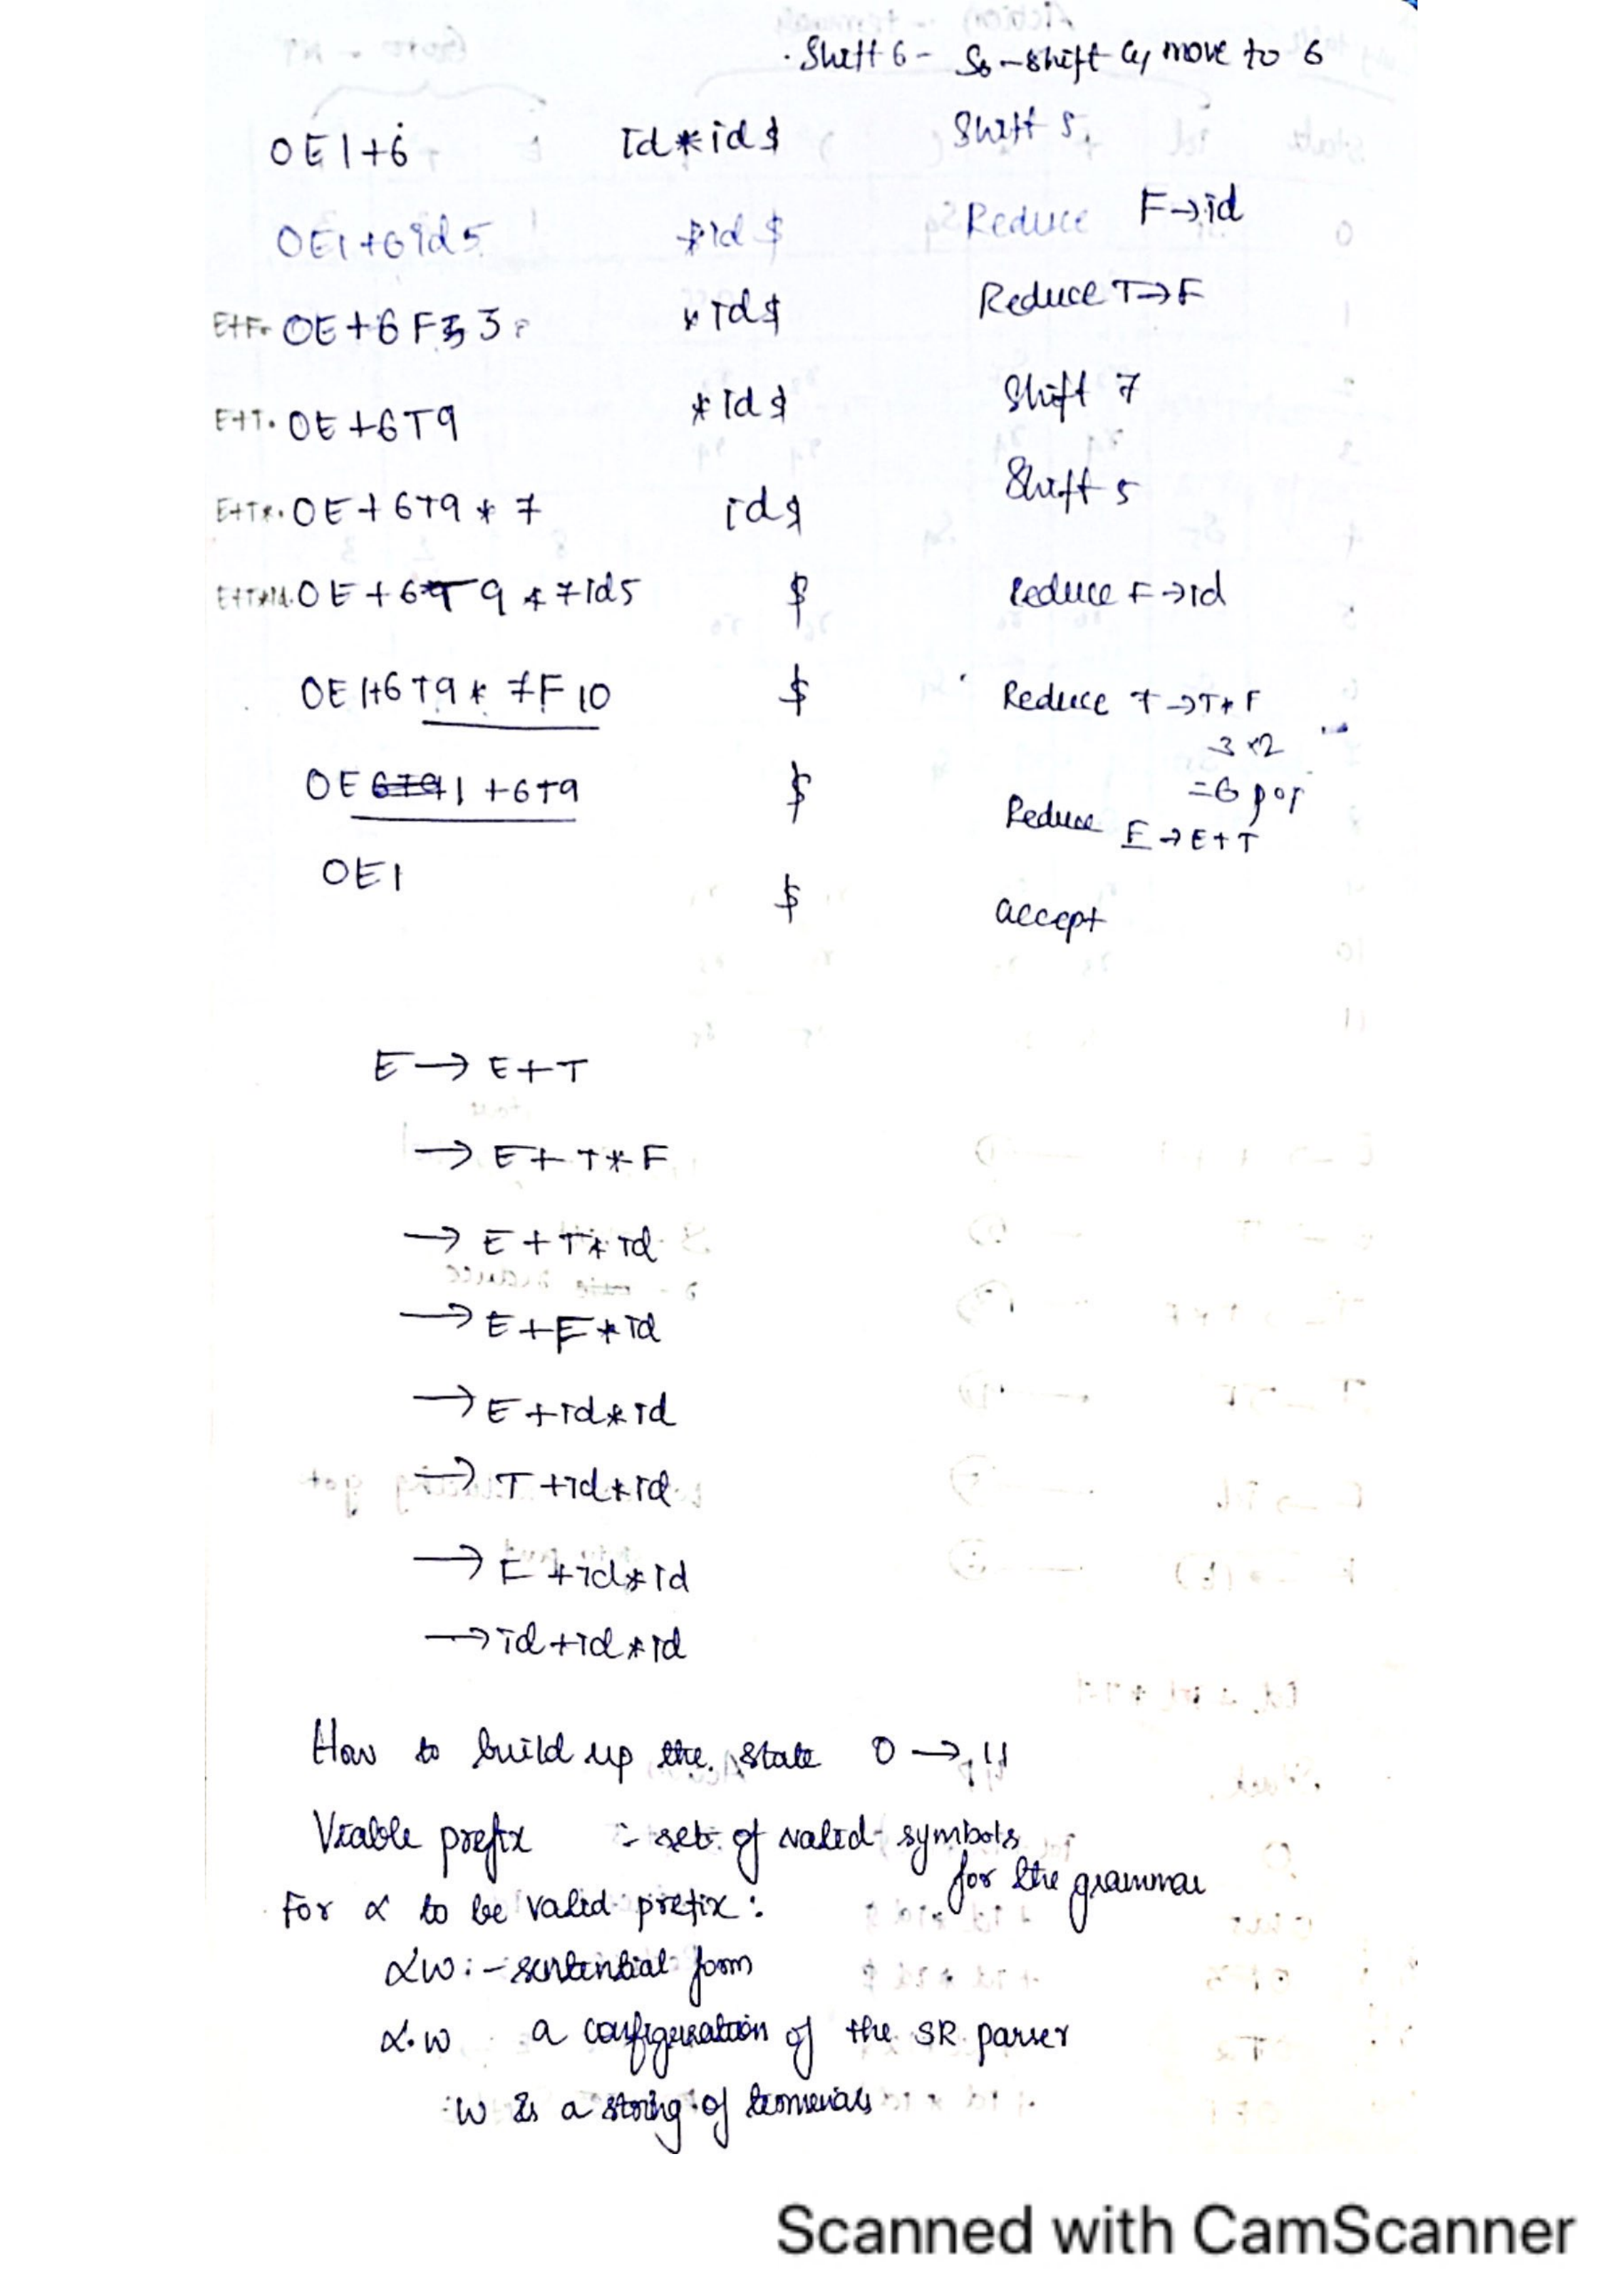 . Shift 6 - S6 - shift 4, move to 6
0E1+6 id*id$ Shift 5
0E1+6id5 *id$ Reduce F→id
E+F. 0E+6F 3 *id$ Reduce T→F
E+T. 0E+6T9 *id$ Shift 7
E+T*. 0E+6T9*7 id$ Shift 5
E+T*id. 0E+6T9*7id5 $ Reduce F→id
0E1+6T9*7F10 $ Reduce T→T*F
3×2
=6 pop
0E 1+6T9 $ Reduce E→E+T
0E1 $ accept
E → E+T
→ E+T*F
→ E+T*id
→ E+F*id
→ E+id*id
→ T+id*id
→ F+id*id
→ id+id*id
How to build up the state 0 → 11
Viable prefix :- set of valid symbols
for the grammar
For α to be valid prefix :
αw :- sentential form
α.w a configuration of the SR parser
w is a string of terminals
Scanned with CamScanner